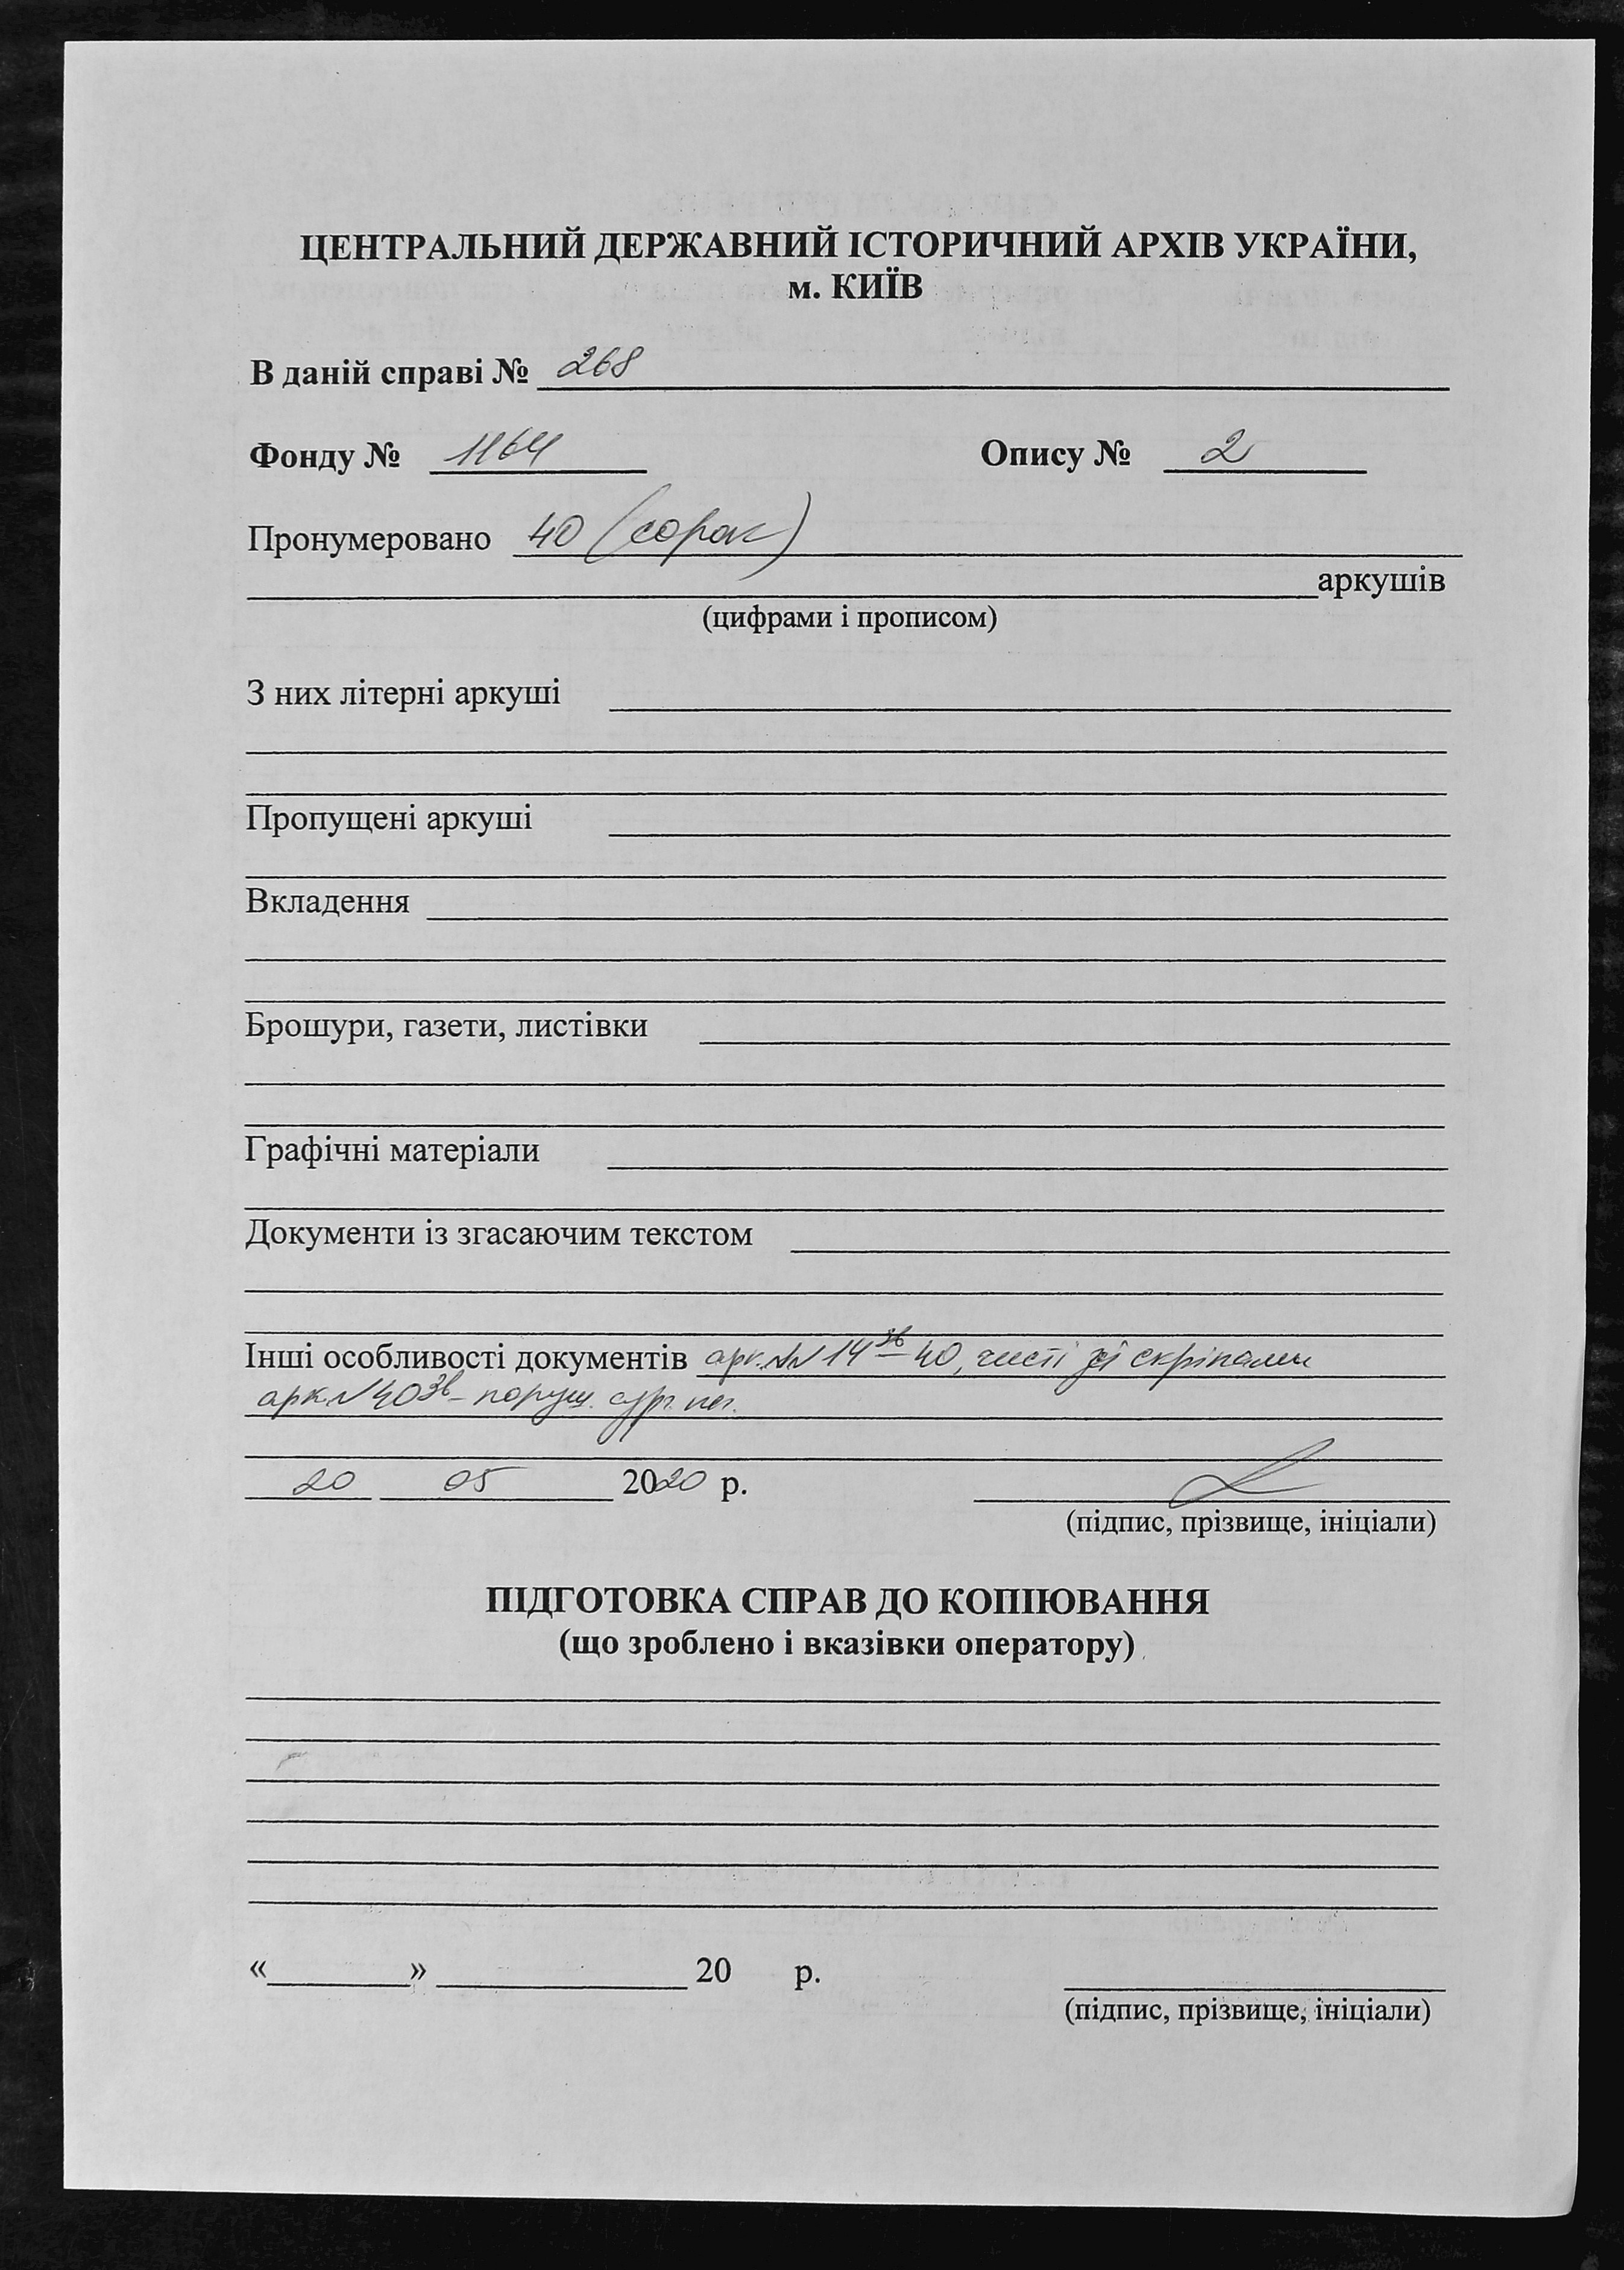 ЦЕНТРАЛЬНИЙ ДЕРЖАВНИЙ ІСТОРИЧНИЙ АРХІВ УКРАЇНИ,
м. КИЇВ
В даній справі № 268
Фонду № 1164 Опису № 2
Пронумеровано 40 (сорок)
аркушів
(цифрами і прописом)
З них літерні аркуші
Пропущені аркуші
Вкладення
Брошури, газети, листівки
Графічні матеріали
Документи із згасаючим текстом
Інші особливості документів арк. №№ 14зв–40, чисті зі скріпами
арк. № 40зв – поруш. сург. печ.
20 05 2020 р.
(підпис, прізвище, ініціали)
ПІДГОТОВКА СПРАВ ДО КОПІЮВАННЯ
(що зроблено і вказівки оператору)
«          »                     20       р.
(підпис, прізвище, ініціали)